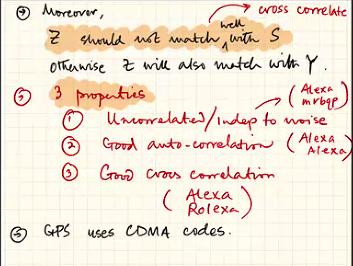 cross correlate
④ Moreover,
Z should not match well with S
otherwise Z will also match with Y.
3 properties
(Alexa
mrbqp)
① Uncorrelated/Indep to noise
② Good auto-correlation (Alexa
Alexa)
③ Good cross correlation
(Alexa
Rolexa)
⑤ GPS uses CDMA codes.